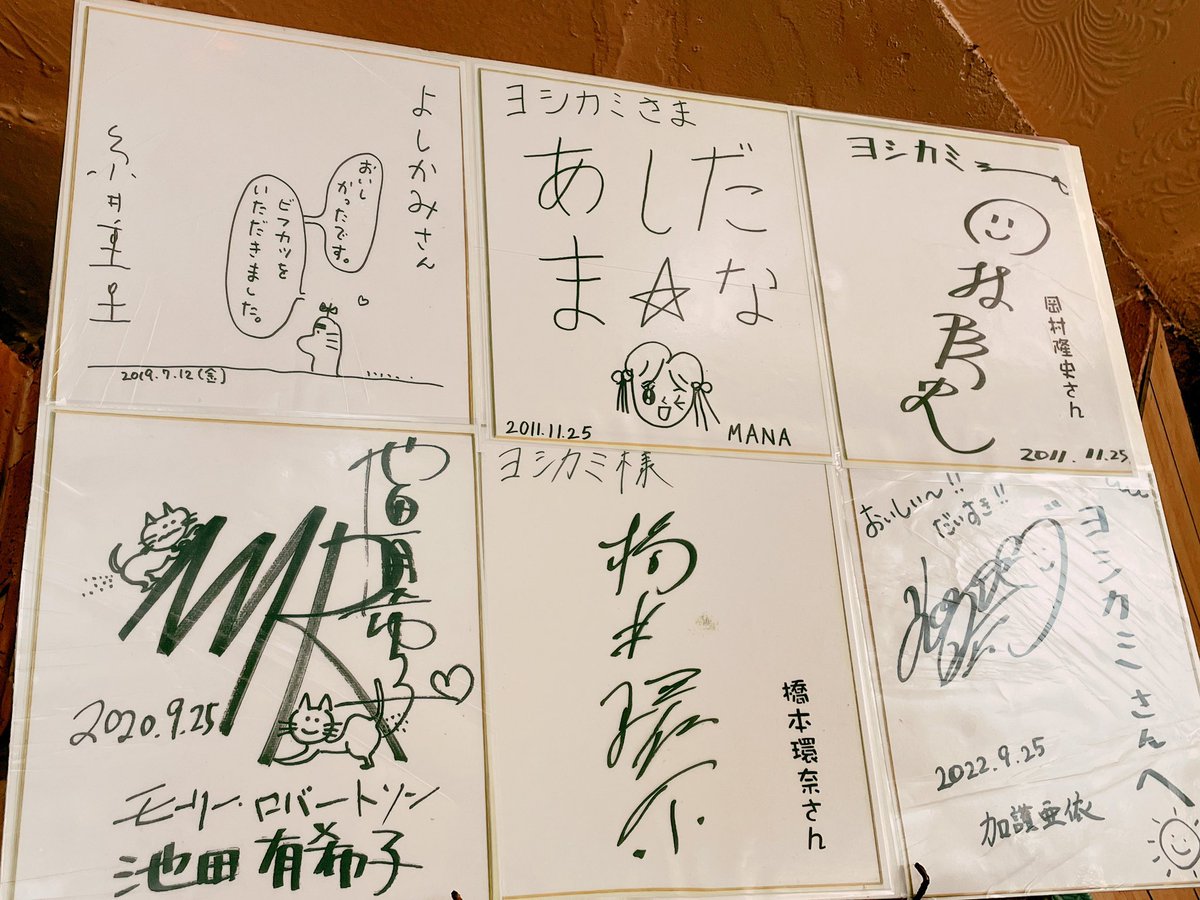 よしかみさん
おいし
かったです。
ビフカツを
いただきました。
糸井重里
2019.7.12(金)
ヨシカミさま
あしだ
ま☆な
2011.11.25
MANA
ヨシカミ
岡村隆史さん
2011.11.25
2020.9.25
モーリー・ロバートソン
池田有希子
ヨシカミ様
橋本環奈
橋本環奈さん
ヨシカミさんへ
おいしい〜!!
だいすき!!
2022.9.25
加護亜依